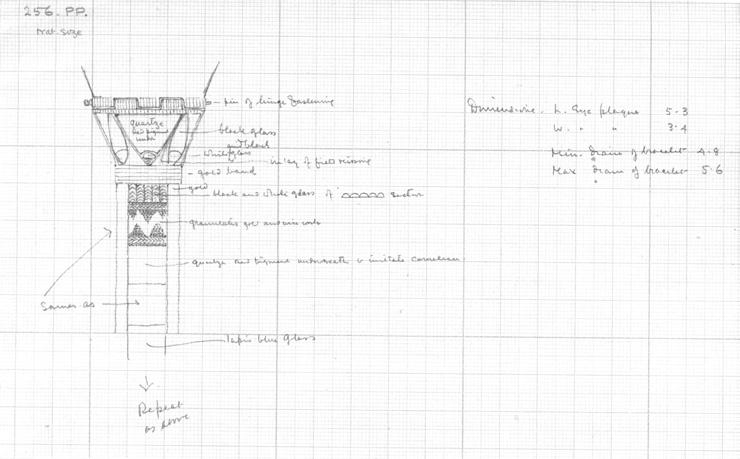 256. PP.
Nat. Size
pin of hinge fastening
quartz
red pigment
under
black glass
and black
white glass
inlay of field missing
gold band
gold
black and white glass of section
granulated gold and wire work
quartz red pigment underneath to imitate carnelian
Same as
lapis blue glass
Repeat
as above
Dimensions. L. Eye plaque 5.3
W. " " 3.4
Min. diam of bracelet 4.8
Max diam of bracelet 5.6